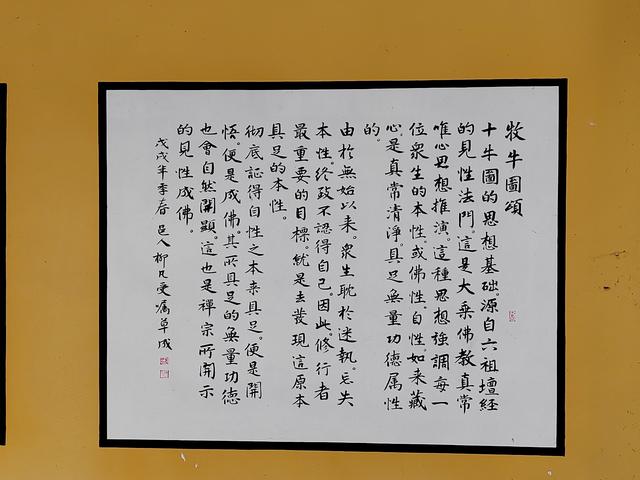 牧牛圖頌
十牛圖的思想基础。源自六祖壇経
的見性法門。這是大乘佛教真常
唯心思想推演。這種思想強調每一
位衆生的本性。或佛性。自性。如来藏
心。是真常清淨。具足無量功德属性
的。
由於無始以来。衆生耽於迷執。忘失
本性。終致不認得自己。因此。修行者
最重要的目標。就是去發現這原本
具足的本性。
彻底証得自性之本来具足。便是開
悟。便是成佛。其所具足的無量功德
也會自然開顯。這也是禪宗所開示
的見性成佛。
戊戌年季春 邑人柳凡受嘱草成